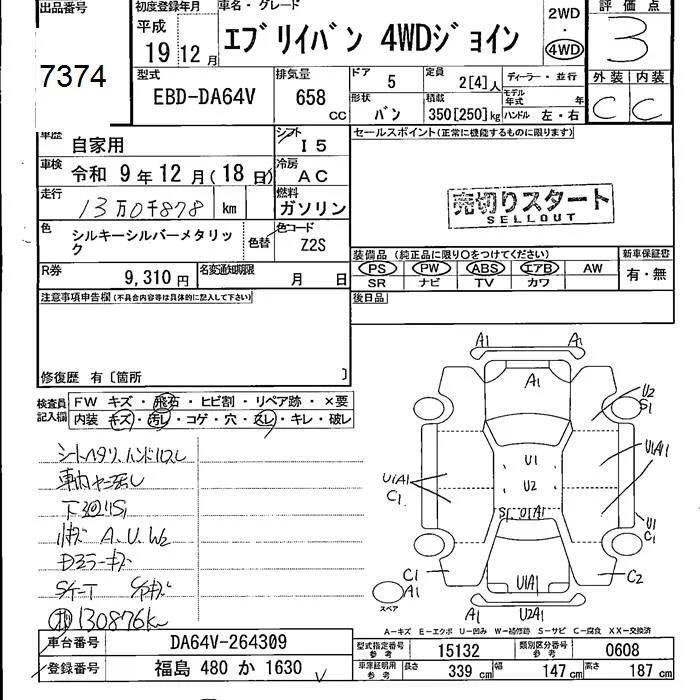 出品番号
7374
初度登録年月
平成
19年12月
車名・グレード
エブリイバン 4WDジョイン
2WD
・
4WD
評価点
3
外装 内装
C C
型式
EBD-DA64V
排気量
658 CC
ドア 5
形状 バン
定員 2[4]人
積載 350[250]kg
ディーラー・並行
モデル年式 年
ハンドル 左・右
車歴 自家用
シフト I5
車検 令和 9年 12月(18日)
冷房 AC
走行 13万0千878 km
燃料 ガソリン
色 シルキーシルバーメタリック
色替
色コード Z2S
R券 9,310円
名変通知期限 月 日
セールスポイント(正常に機能するものに限ります)
売切りスタート
SELLOUT
装備品(純正品に限り○をつけてください)
PS PW ABS エアB AW
SR ナビ TV カワ
新車保証書
有・無
後日品
注意事項申告欄(不具合内容等は具体的に記入して下さい)
修復歴 有〔箇所 〕
検査員記入欄
FW キズ・飛石・ヒビ割・リペア跡・×要
内装 キズ・汚レ・コゲ・穴・スレ・キレ・破レ
シートヘタリ、ハンドルスレ
下回りS1
A.U.W2
Dミラーキズ
130876km
A1 A1
A1
U2
S1
U1
U2
U1A1
U1A1
C1
S1 U1A1
U1
C1
C1
A1
C2
U1A1
スペア
A1 U2A1
A-キズ E-エクボ U-凹み W-補修跡 S-サビ C-腐食 XX-交換済
車台番号 DA64V-264309
登録番号 福島 480 か 1630
型式指定番号 参考 15132
類別区分番号 参考 0608
車庫証明用 参考 長さ 339cm 幅 147cm 高さ 187cm